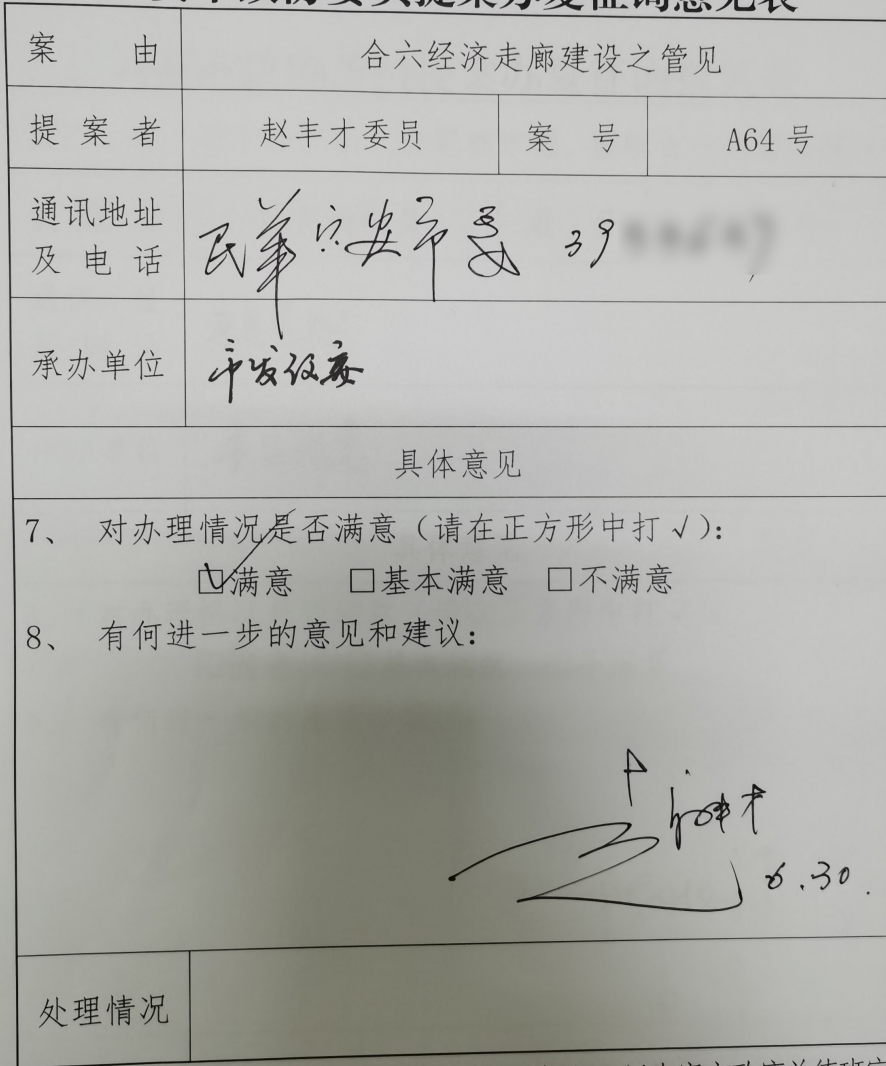 委员提案办复征询意见表
案由 合六经济走廊建设之管见
提案者 赵丰才委员 案号 A64号
通讯地址及电话 民革六安市委 39
承办单位 市发改委
具体意见
7、 对办理情况是否满意（请在正方形中打√）：
☑满意 □基本满意 □不满意
8、 有何进一步的意见和建议：
6.30.
处理情况